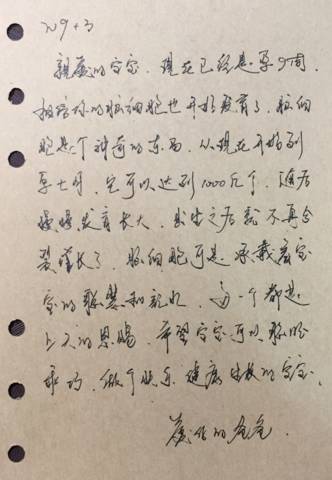 W9+3
亲爱的宝宝，现在已经是孕9周，
相信你的脑细胞也开始发育了，脑细
胞是个神奇的东西，从现在开始到
孕七月，它可以达到1000亿个，随后
慢慢发育长大，出生之后就不再会
裂增长了，脑细胞可是承载着宝
宝的智慧和记忆，每一个都是
上天的恩赐，希望宝宝可以聪明
乖巧，做个快乐、健康生长的宝宝。
爱你的爸爸.